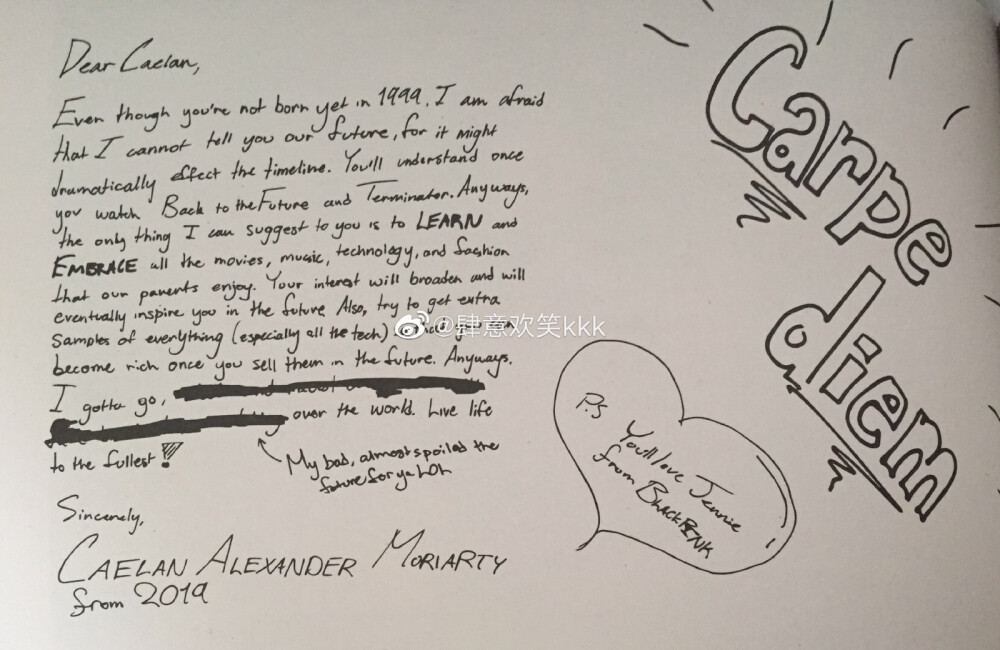 Dear Caelan,
Even though you're not born yet in 1999. I am afraid
that I cannot tell you our future, for it might
dramatically effect the timeline. You'll understand once
you watch Back to the Future and Terminator. Anyways,
the only thing I can suggest to you is to LEARN and
EMBRACE all the movies, music, technology, and fashion
that our parents enjoy. Your interest will broaden and will
eventually inspire you in the future Also, try to get extra
samples of everything (especially all the tech)
become rich once you sell them in the future. Anyways.
I gotta go,
over the world. Live life
to the fullest!
My bad, almost spoiled the
future for ya LOL
Sincerely,
CAELAN ALEXANDER MORIARTY
from 2019
P.S
You'll love Jennie
from BLACKPINK
Carpe
diem
@肆意欢笑kkk